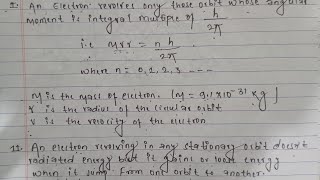 2. An electron revolves only those orbit whose angular
moment is integral multiple of h/2π
i.e mvr = nh/2π
where n = 0, 1, 2, 3 ----
M is the mass of electron. [M = 9.1×10⁻³¹ kg]
r is the radius of the circular orbit
v is the velocity of the electron
11. An electron revolving in any stationary orbit doesn't
radiated energy but it gains or loose energy
when it jump from one orbit to another.